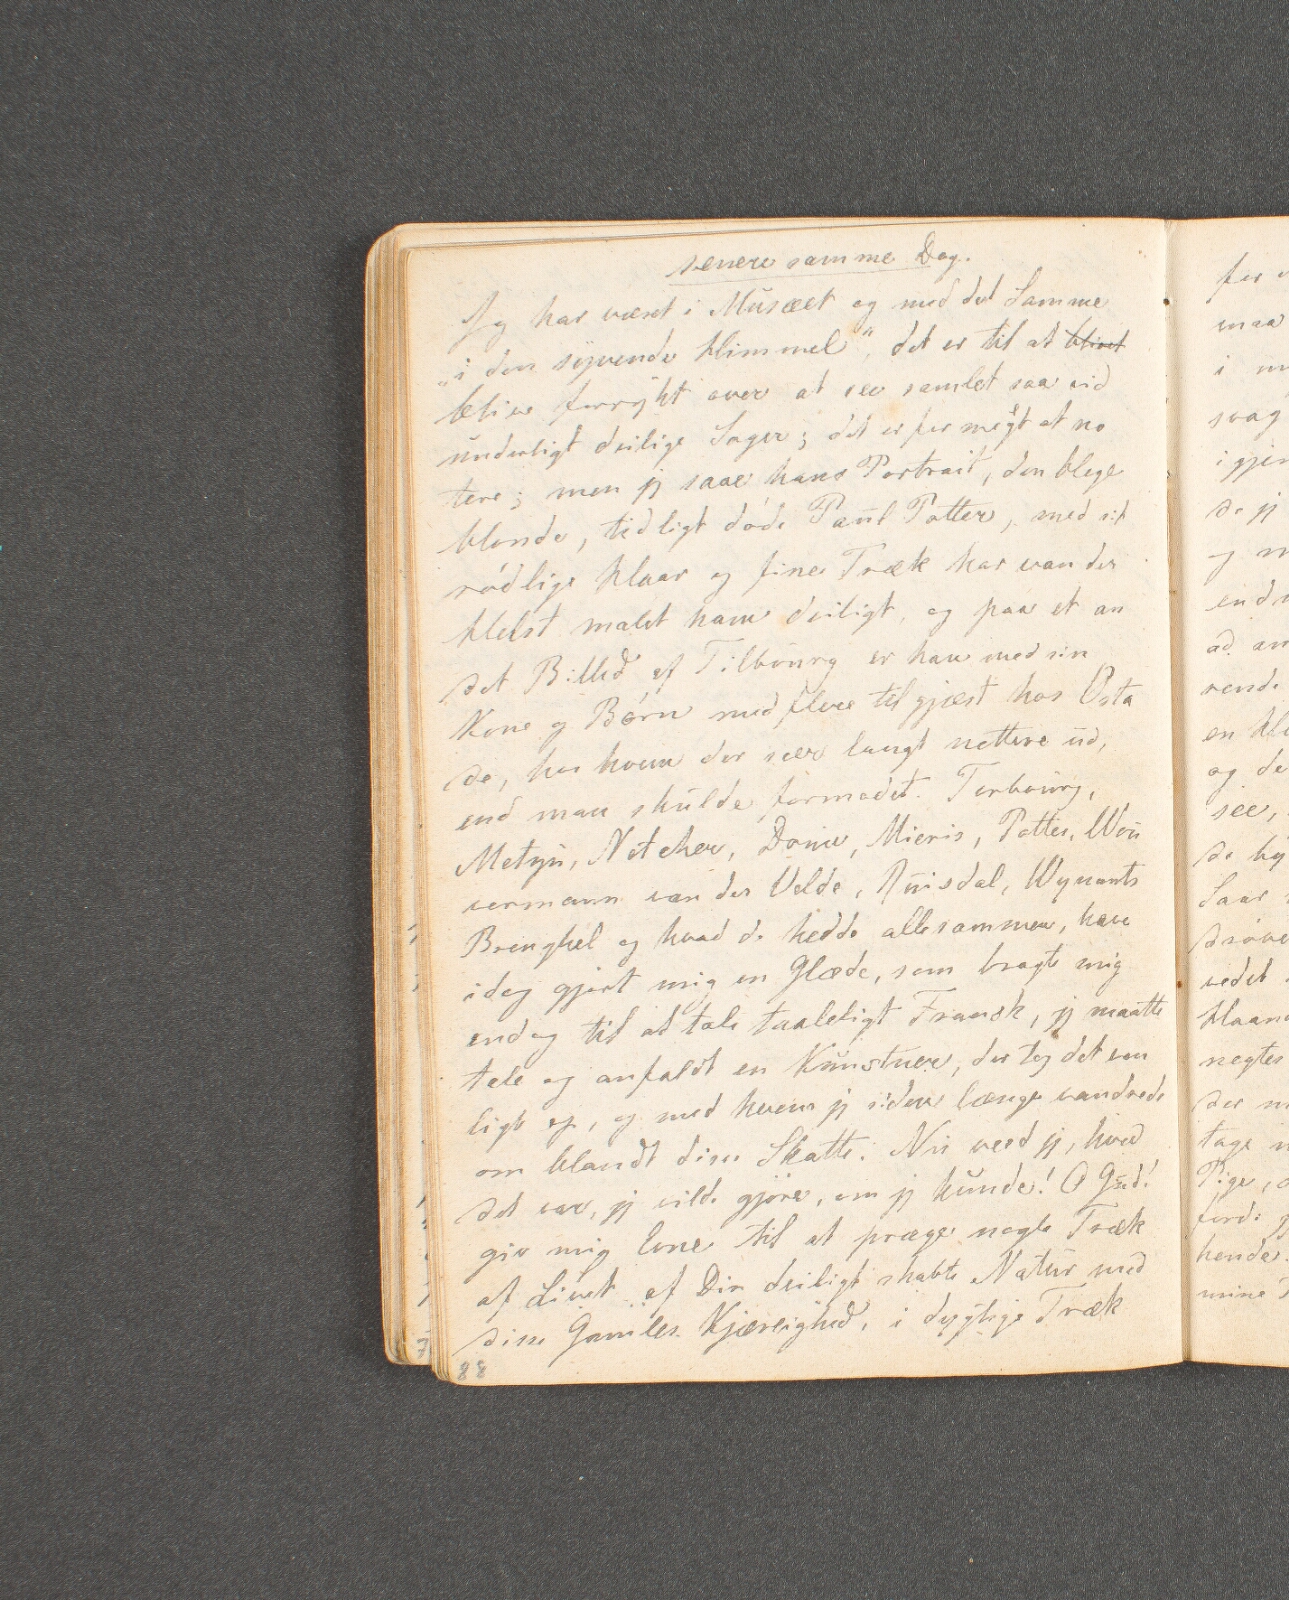 senere samme Dag.
Jeg har været i Musæet og med det Samme
"i den syvende Himmel", det er til at blivet
blive forrykt over at see samlet saa vid
underligt deilige Sager; det er for meget at no
tere; men jeg saae hans Portrait, den blege
blonde, tidligt døde Paul Potter, med sit
rødlige Haar og fine Træk har van der
Helst malet ham deiligt, og paa et an
det Billed af Tilbourg er han med sin
Kone og Børn med flere til gjæst hos Osta
de, hos hvem der seer langt nettere ud,
end man skulde formodet. Terbourg,
Metzu, Netcher, Douw, Mieris, Potter, Wou
vermann van der Velde, Ruisdal, Wynants
Breughel og hvad de hedde allesammen, have
idag gjort mig en Glæde, som bragte mig
endog til at tale taaleligt Fransk, jeg maatte
tale og anfaldt en Kunstner, der tog det ven
ligt op, og med hvem jeg siden længe vandrede
om blandt disse Skatte. Nu veed jeg, hvad
det var, jeg vilde gjøre, om jeg kunde! O Gud!
giv mig Evne til at præge nogle Træk
af Livet af Din deiligt skabte Natur med
disse Gamles Kjærlighed, i dygtige Træk
88
for
maa
i
svag
igjen
de jeg
og
end
ad an
rende
en
og de
see,
de
Saar
vedet
Haand
negtes
der
tage
Pige,
hende.
mine